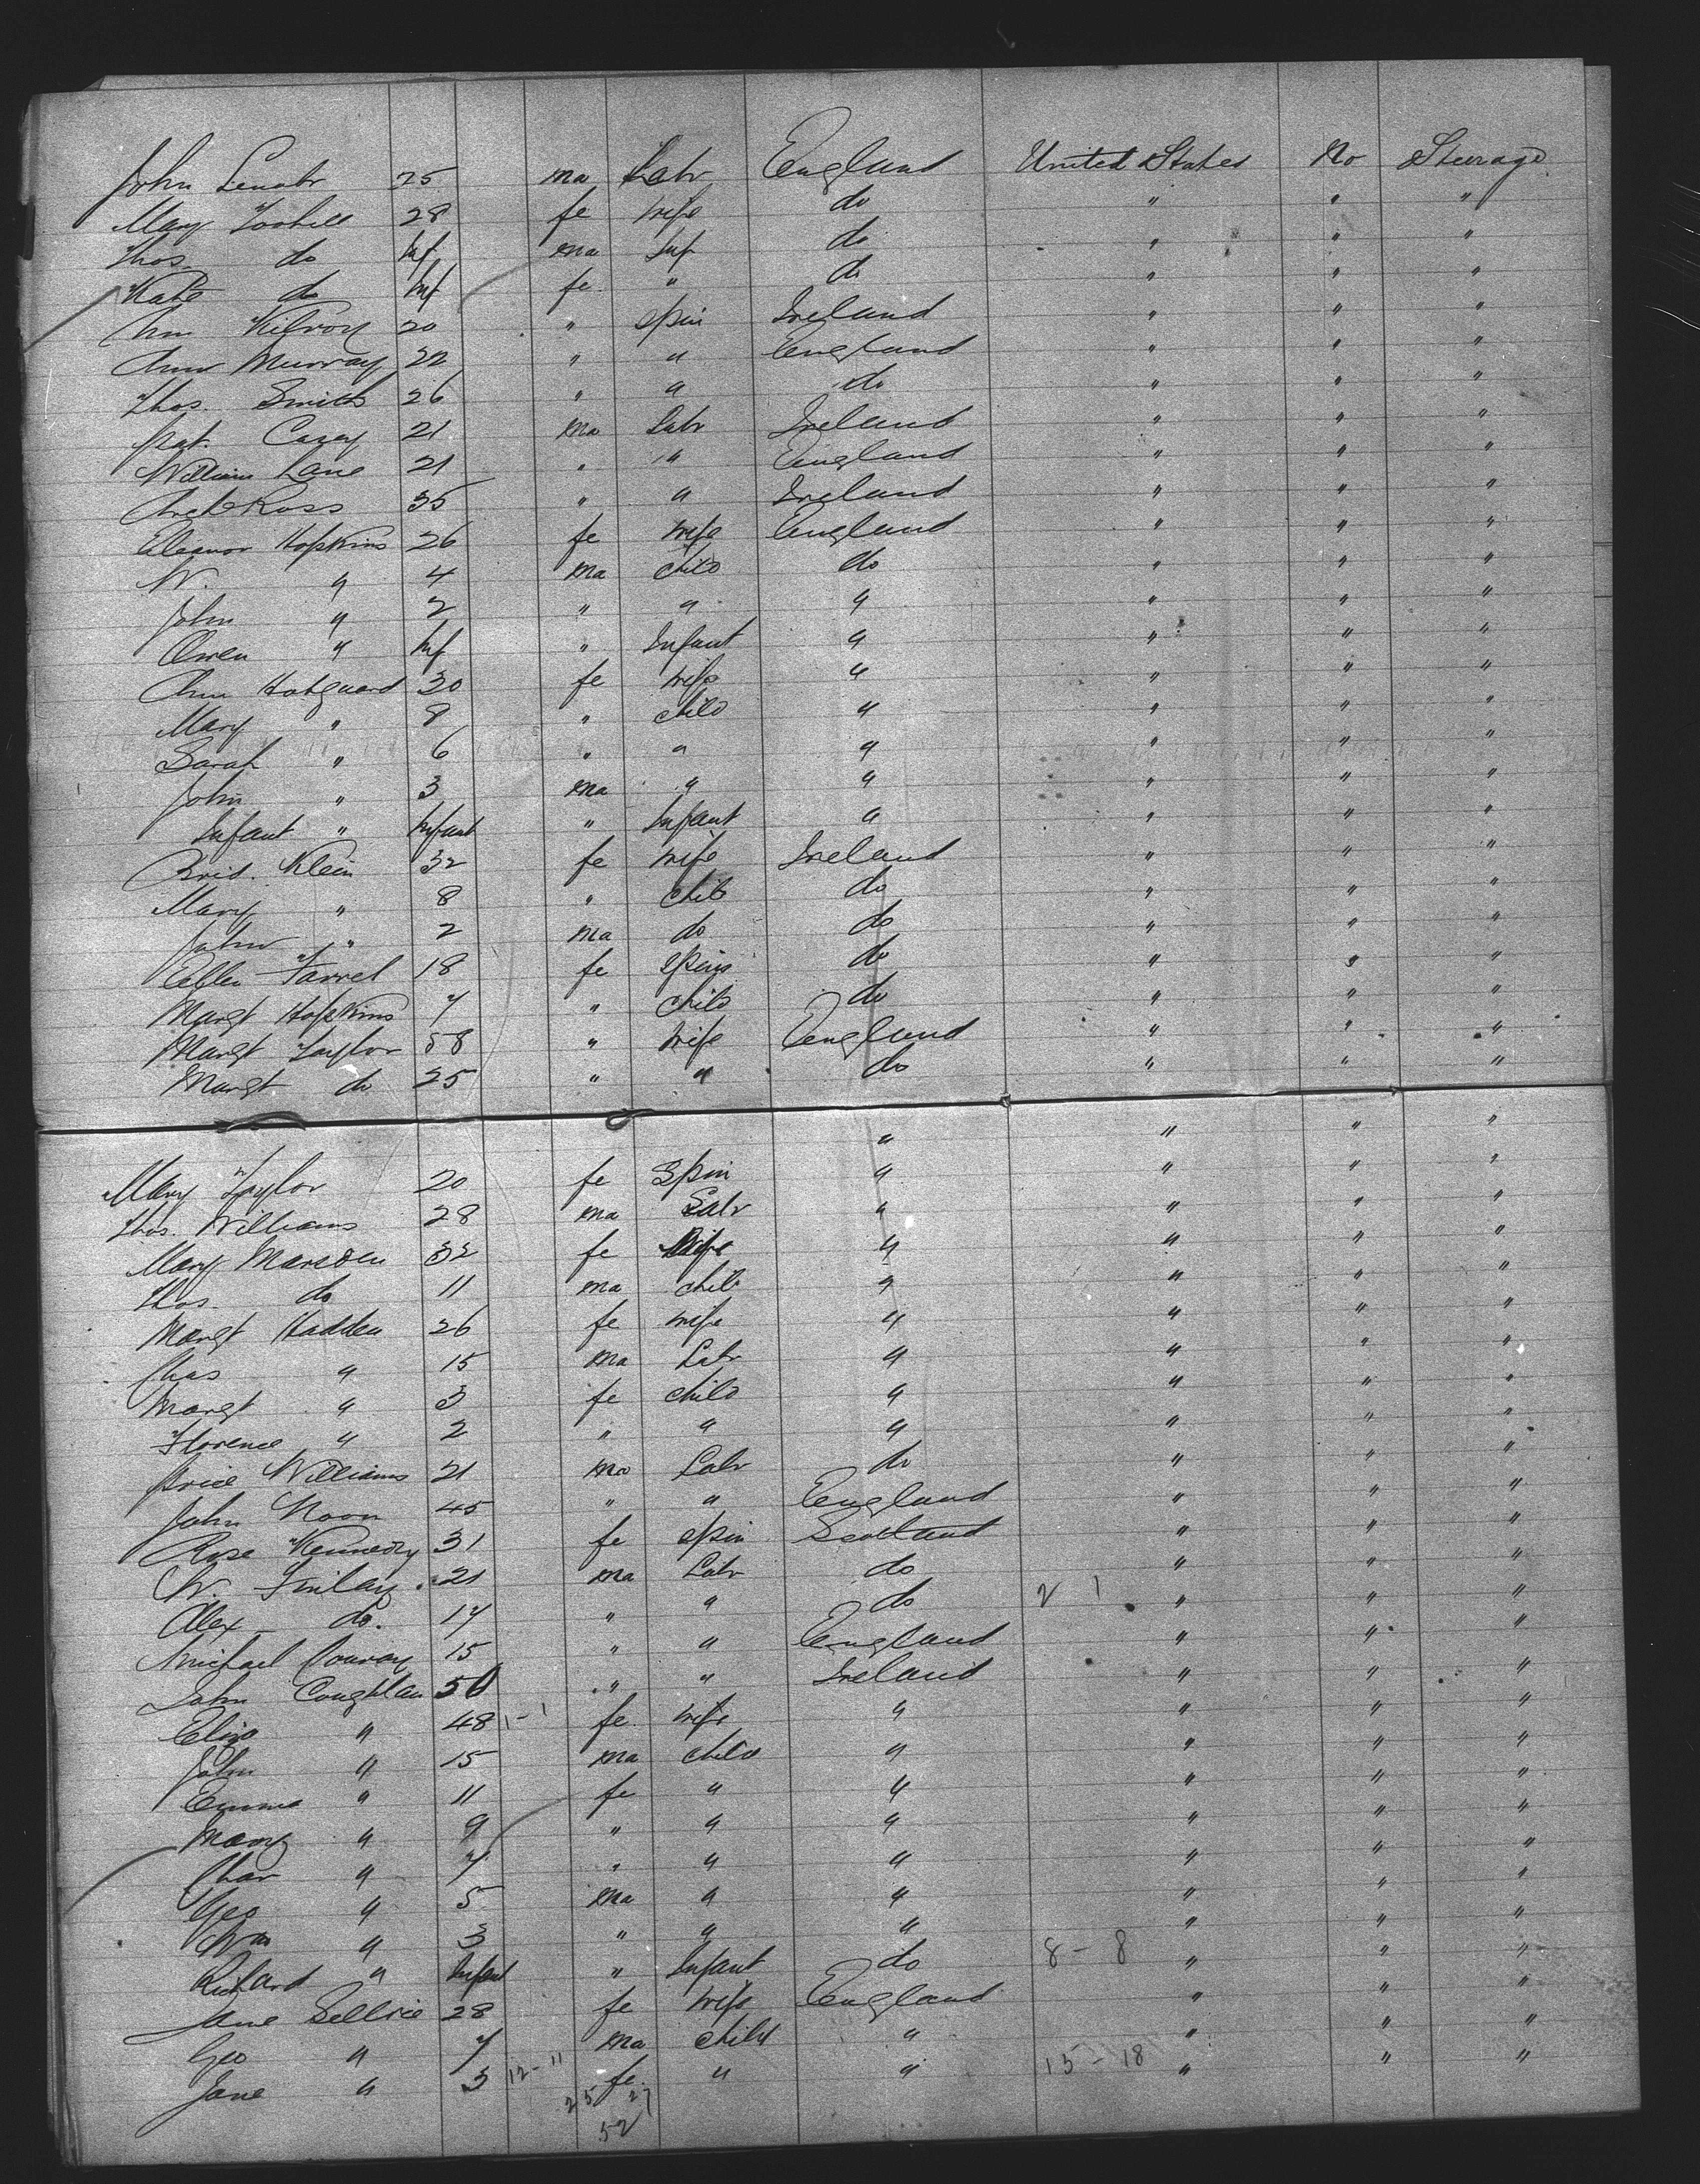 John Senabr 25 ma Labr England United States No Steerage
Mary Toohill 28 fe wife do " " "
Thos. do Inf ma Inf do " " "
Kate do Inf fe " do " " "
Ann Kilroy 20 " spin Ireland " " "
Ann Murray 22 " " England " " "
Thos. Smith 26 " " do " " "
Pat. Casey 21 ma Labr Ireland " " "
William Lane 21 " " England " " "
Ross 35 " " Ireland " " "
Eleanor Hopkins 26 fe wife England " " "
W. " 4 ma child do " " "
John " 2 " " " " " "
Owen " Inf " Infant " " " "
Ann Hotguard 30 fe wife " " " "
Mary " 8 " child " " " "
Sarah " 6 " " " " " "
John " 3 ma " " " " "
Infant " Infant " Infant " " " "
Brid. Klein 32 fe wife Ireland " " "
Mary " 8 " child do " " "
John " 2 ma do do " " "
Ellen Farrel 18 fe spin do " " "
Margt Hopkins 7 " child do " " "
Margt Taylor 58 " wife England " " "
Margt do 25 " " do " " "
" " " "
Mary Taylor 20 fe Spin " " " "
Thos. Williams 28 ma Labr " " " "
Mary Marsden 32 fe Wife " " " "
Thos. do 11 ma child " " " "
Margt Hadden 26 fe wife " " " "
Chas " 15 ma Labr " " " "
Margt " 3 fe child " " " "
Florence " 2 " " " " " "
Price Williams 21 ma Labr do " " "
John Noon 45 " " England " " "
Rose Kennedy 31 fe spin Scotland " " "
W. Finlay 21 ma Labr do " " "
Alex do. 17 " " do 2 1 " " "
Michael Conray 15 " " England " " "
John Coughlan 50 " " Ireland " " "
Eliza " 48 1-1 fe wife " " " "
John " 15 ma child " " " "
Emma " 11 fe " " " " "
Mary " 9 " " " " " "
Char " 7 " " " " " "
Geo " 5 ma " " " " "
Wm " 3 " " " " " "
Richard " Infant " Infant do 8-8 " " "
Jane Sellice 28 fe wife England " " "
Geo " 7 ma child " " " "
Jane " 3 12-11 fe. " " 15-18 " " "
25 27
52